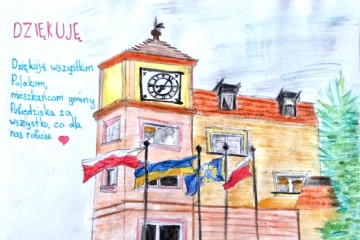 DZIĘKUJĘ
Dziękuję wszystkim
Polakom,
mieszkańcom gminy
Pobiedziska za
wszystko, co dla
nas robicie